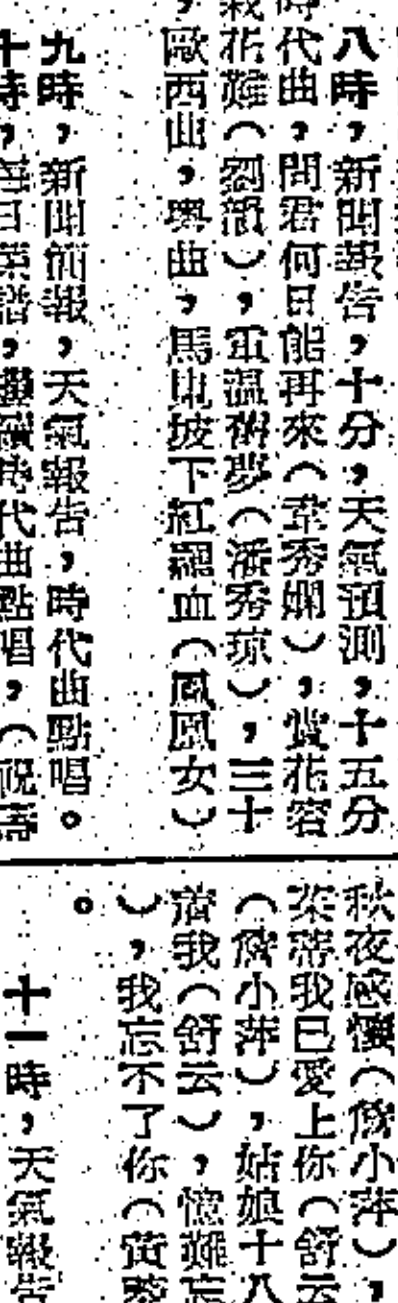 八時，新聞報告，十分，天氣預測，十五分
時代曲，問君何日能再來（韋秀嫻），賞花容
栽花難（劉韻），重溫舊夢（潘秀瓊），三十
，歐西曲，粵曲，馬嵬坡下紅羅血（鳳凰女）
九時，新聞簡報，天氣報告，時代曲點唱。
十時，每日菜譜，繼續時代曲點唱，（祝壽
秋夜感懷（小萍），
茱蒂我已愛上你（舒云
（小萍），姑娘十八
我（舒云），憶難忘
），我忘不了你（黃
。
十一時，天氣報告